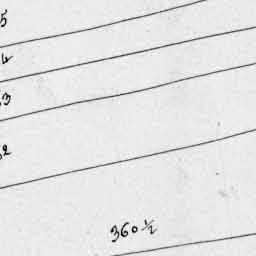 5
4
3
2
360 1/2